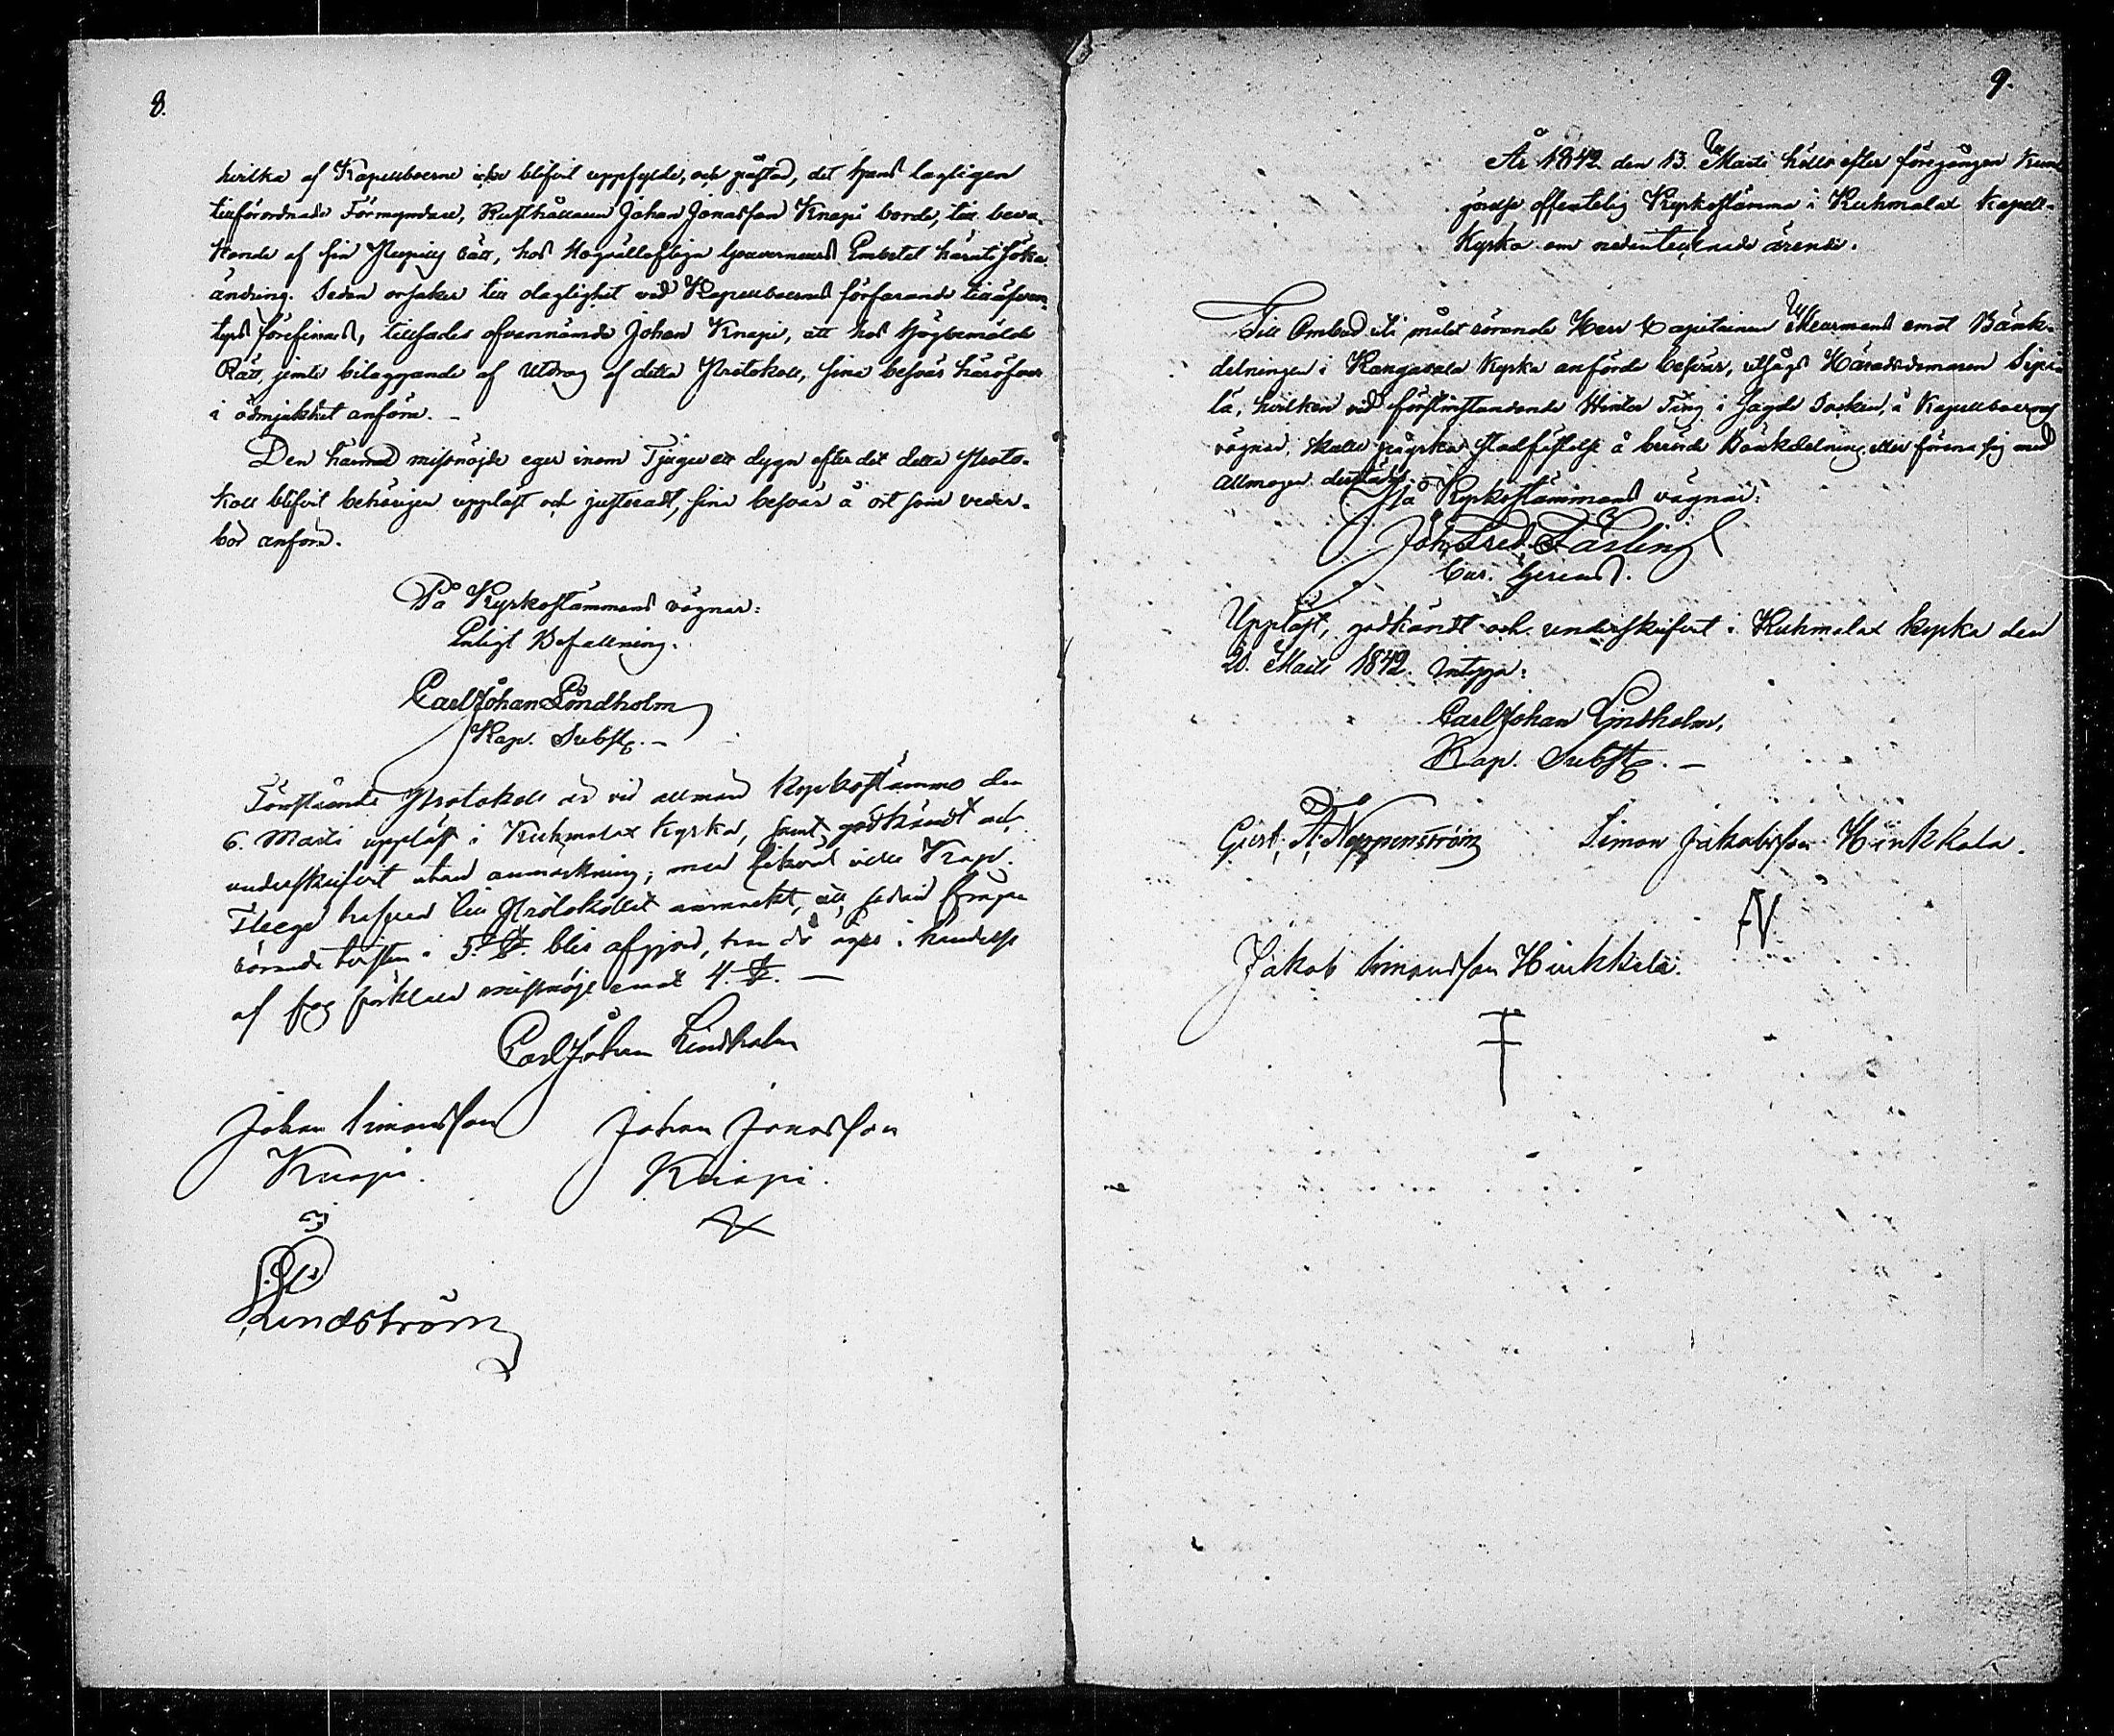 8.
hvilka af Kapellboerne icke blifvit uppfylde, och påstod, det hans lagligen
tillförordnade Förmyndare, Rusthållaren Johan Jonasson Knapi borde, till beva-
kande af sin Myndlings rätt, hos Högvällofliga Gouverneurs Embetet häruti söka
ändring. Sedan orsaker till olaglighet vid Kapellboernes förfarande tilläfven-
tyrs förefinnes, tillsades ofvannämnde Johan Knapi, att hos Högbemälde
Rätt, jemte bilaggande af Utdrag af detta Protokoll, sina besvär häröfver
i ödmjukhet anföra. -
Den härmed missnöjde eger inom Tjuguett dygn efter det detta Proto-
koll blifvit behörigen uppläst och justeradt, sina besvär å ort som veder-
bör anföra.
På Kyrkostämmans vägnar:
Enligt Befallning.
Carl Johan Lindholm
Kap. Subst. -
Förestående Protokoll är vid allmän Kyrkostämma den
6. Martii uppläst i Kuhmalax Kyrka, samt godkändt och
underskrifvit utan anmärkning; men likväl ville Kap.
till Protokollet anmärkt, att sedan frågan
rörande tvisten i 5. §. blir afgjord, han då äger i händelse
af förklara missnöje emot 4. §. -
Carl Johan Lindholm
Johan Simonsson
Knapi.
Johan Jonasson
Knapi.
Lindström
9.
År 1842 den 13. Martii hölls efter föregången Kun-
görelse offentelig Kyrkostämma i Kuhmalax Kapell-
Kyrka om nedantecknade ärende.
Till Ombud uti målet rörande Herr Capitainen Meurmans emot Bänk-
delningen i Kangasala Kyrka anförde besvär, utsågs Häradsdomaren Sipi-
lä, hvilken vid förstinstundande Winter Ting i sagde Socken, å Kapellboernes
vägnar, skulle påyrka stadfästelse å berörde Bänkdelning eller förena sig med
Allmogen derstädes.
På Kyrkostämmans vägnar:
Joh. Fred. Färling
Cur. Gerens.
Uppläst, godkändt och underskrifvit i Kuhmalax kyrka den
20. Martii 1842. intyga:
Carl Johan Lindholm,
Kap. Subst. -
Gust. A. Noppenström
Simon Jakobsson Hinkkala.
Jakob Simonsson Hinkkala.